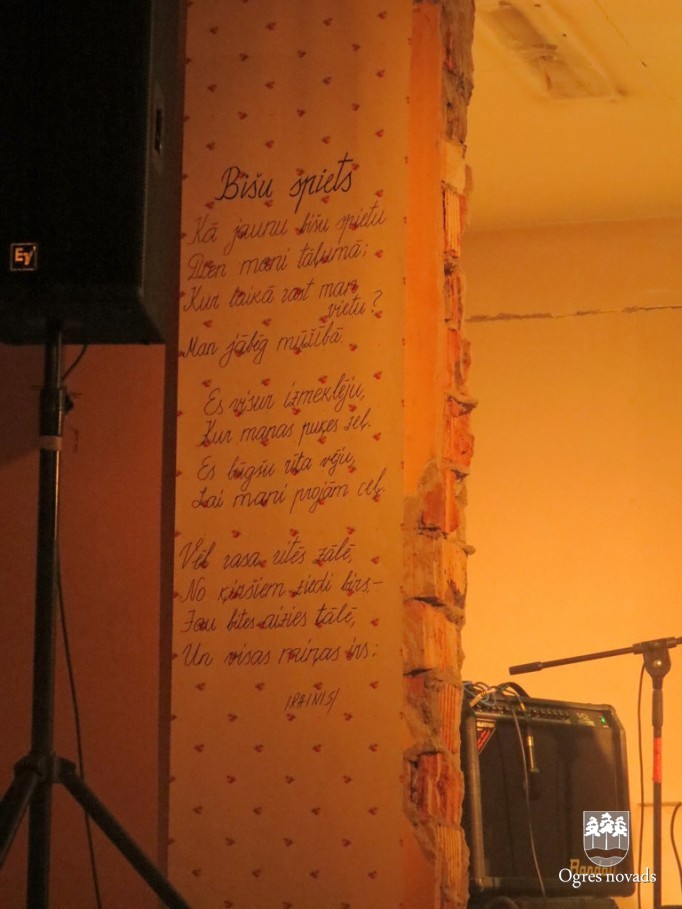 Bišu spiets
Kā jaunu bišu spietu
Dzen mani tāļumā;
Kur laikā rast man
vietu?
Man jābēg mūžībā.
Es visur izmeklēju,
Kur maņas puķes zeļ.
Es lūgšu rīta vēju,
Lai mani projām ceļ.
Vēl rasa ritēs zālē,
No ķiršiem ziedi birs, –
Jau bites aizies tālē,
Un visas maiņas irs:
/RAINIS/
EV
Ogres novads